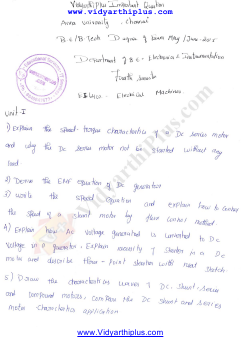 www.Vidyarthiplus.com
Vidyarthi Plus Important Question
Anna University - Chennai
B.E/B.Tech Degree of Exam May/June-2015
Department of B.E - Electronics & Instrumentation
Fourth Semester
Electrical Machines
Unit-I
1) Explain the speed-torque characteristics of a Dc series motor
and why the Dc series motor not be started without any
load
2) Derive the EMF equation of Dc generator
3) Write the speed equation and explain how to control
the speed of a shunt motor by flux control method.
4) Explain how AC voltage generated is converted to Dc
voltage in generator. Explain necessity of starter in a Dc
motor and describe three-point starter with neat sketch
5) Draw the characteristics curves of Dc shunt, series
and compound motors. compare the Dc shunt and series
motor characteristics application
www.Vidyarthiplus.com